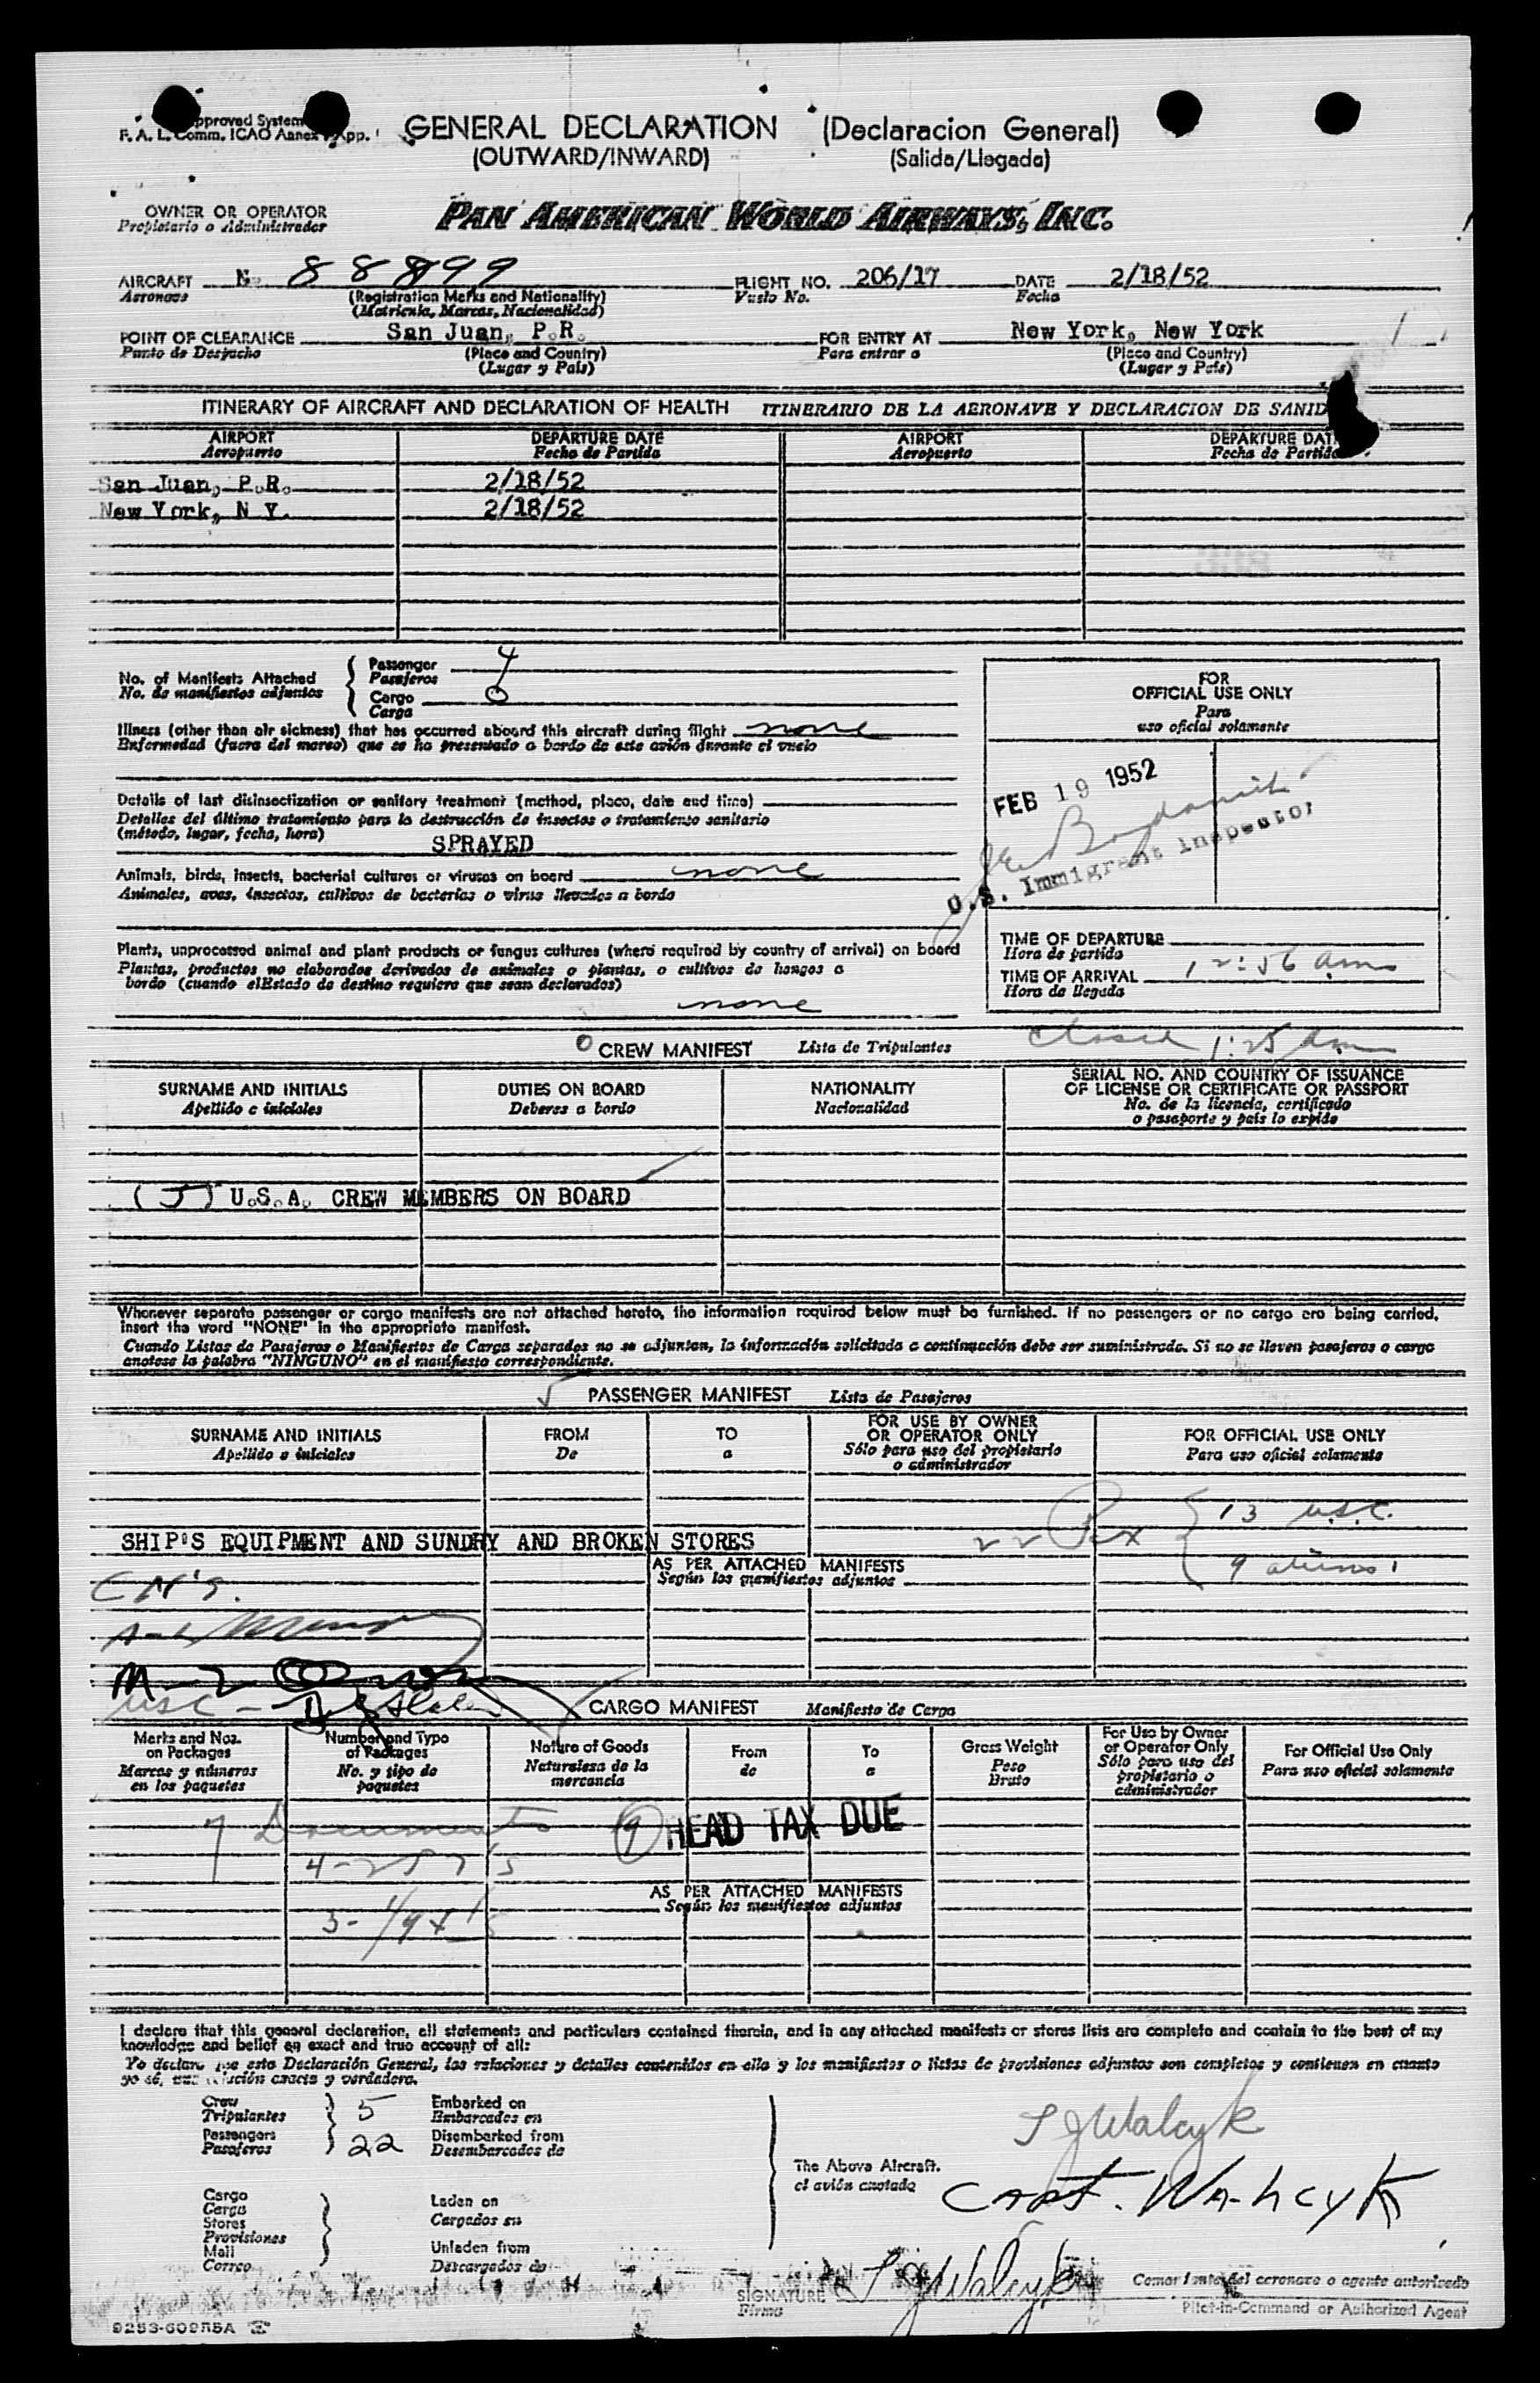 GENERAL DECLARATION (Declaracion General)
F. A. L. Comm. ICAO Annex App.
(OUTWARD/INWARD) (Salida/Llegada)
OWNER OR OPERATOR
Propietario o Administrador
PAN AMERICAN WORLD AIRWAYS, INC.
AIRCRAFT N. 88899 FLIGHT NO. 206/17 DATE 2/18/52
Aeronave (Registration Marks and Nationality) Vuelo No. Fecha
(Matricula, Marcas, Nacionalidad)
POINT OF CLEARANCE San Juan, P.R. FOR ENTRY AT New York, New York
Punto de Despacho (Place and Country) Para entrar a (Place and Country)
(Lugar y País) (Lugar y País)
ITINERARY OF AIRCRAFT AND DECLARATION OF HEALTH ITINERARIO DE LA AERONAVE Y DECLARACION DE SANID
AIRPORT DEPARTURE DATE AIRPORT DEPARTURE DAT
Aeropuerto Fecha de Partida Aeropuerto Fecha de Partida
San Juan, P.R. 2/18/52
New York, N Y. 2/18/52
No. of Manifests Attached
No. de manifiestos adjuntos
Passenger 4
Pasajeros
Cargo 0
Carga
Illness (other than air sickness) that has occurred aboard this aircraft during flight none
Enfermedad (fuera del mareo) que se ha presentado a bordo de este avión durante el vuelo
Details of last disinsectization or sanitary treatment (method, place, date and time)
Detalles del último tratamiento para la destrucción de insectos o tratamiento sanitario
(método, lugar, fecha, hora)
SPRAYED
Animals, birds, insects, bacterial cultures or viruses on board none
Animales, aves, insectos, cultivos de bacterias o virus llevados a bordo
Plants, unprocessed animal and plant products or fungus cultures (where required by country of arrival) on board
Plantas, productos no elaborados derivados de animales o plantas, o cultivos de hongos a
bordo (cuando elEstado de destino requiera que sean declarados)
none
FOR
OFFICIAL USE ONLY
Para
uso oficial solamente
FEB 19 1952
U.S. Immigrant Inspector
TIME OF DEPARTURE
Hora de partida
TIME OF ARRIVAL 12:56 am
Hora de llegada
Closed 1:25 am
0 CREW MANIFEST Lista de Tripulantes
SURNAME AND INITIALS DUTIES ON BOARD NATIONALITY SERIAL NO. AND COUNTRY OF ISSUANCE
OF LICENSE OR CERTIFICATE OR PASSPORT
Apellido e iniciales Deberes a bordo Nacionalidad No. de la licencia, certificado
o pasaporte y país lo expide
(5) U.S.A. CREW MEMBERS ON BOARD
Whenever separate passenger or cargo manifests are not attached hereto, the information required below must be furnished. If no passengers or no cargo are being carried,
insert the word "NONE" in the appropriate manifest.
Cuando Listas de Pasajeros o Manifiestos de Carga separados no se adjuntan, la información solicitada a continuación debe ser suministrada. Si no se lleven pasajeros o carga
anotese la palabra "NINGUNO" en el manifiesto correspondiente.
PASSENGER MANIFEST Lista de Pasajeros
SURNAME AND INITIALS FROM TO FOR USE BY OWNER
OR OPERATOR ONLY FOR OFFICIAL USE ONLY
Apellido e iniciales De a Sólo para uso del propietario
o administrador Para uso oficial solamente
22 Pax 13 U.S.C.
9 aliens
SHIP'S EQUIPMENT AND SUNDRY AND BROKEN STORES
AS PER ATTACHED MANIFESTS
Según los manifiestos adjuntos
USC -
CARGO MANIFEST Manifiesto de Carga
Marks and Nos.
on Packages
Marcas y números
en los paquetes
Number and Type
of Packages
No. y tipo de
paquetes
Nature of Goods
Naturaleza de la
mercancía
From
de
To
a
Gross Weight
Peso
Bruto
For Use by Owner
or Operator Only
Sólo para uso del
propietario o
administrador
For Official Use Only
Para uso oficial solamente
7 Documents
(9) HEAD TAX DUE
4-257's
AS PER ATTACHED MANIFESTS
Según los manifiestos adjuntos
I declare that this general declaration, all statements and particulars contained therein, and in any attached manifests or stores lists are complete and contain to the best of my
knowledge and belief an exact and true account of all:
Yo declaro que esta Declaración General, las relaciones y detalles contenidos en ella y los manifiestos o listas de provisiones adjuntos son completos y contienen en cuanto
yo sé, una relación exacta y verdadera.
Crew 5 Embarked on
Tripulantes Embarcados en
Passengers 22 Disembarked from
Pasajeros Desembarcados de
Cargo
Carga
Stores
Provisiones
Mail
Correo
Laden on
Cargados en
Unladen from
Descargados de
The Above Aircraft.
el avión anotado
Capt. Walcyk
SIGNATURE
Firma
Pilot-in-Command or Authorized Agent